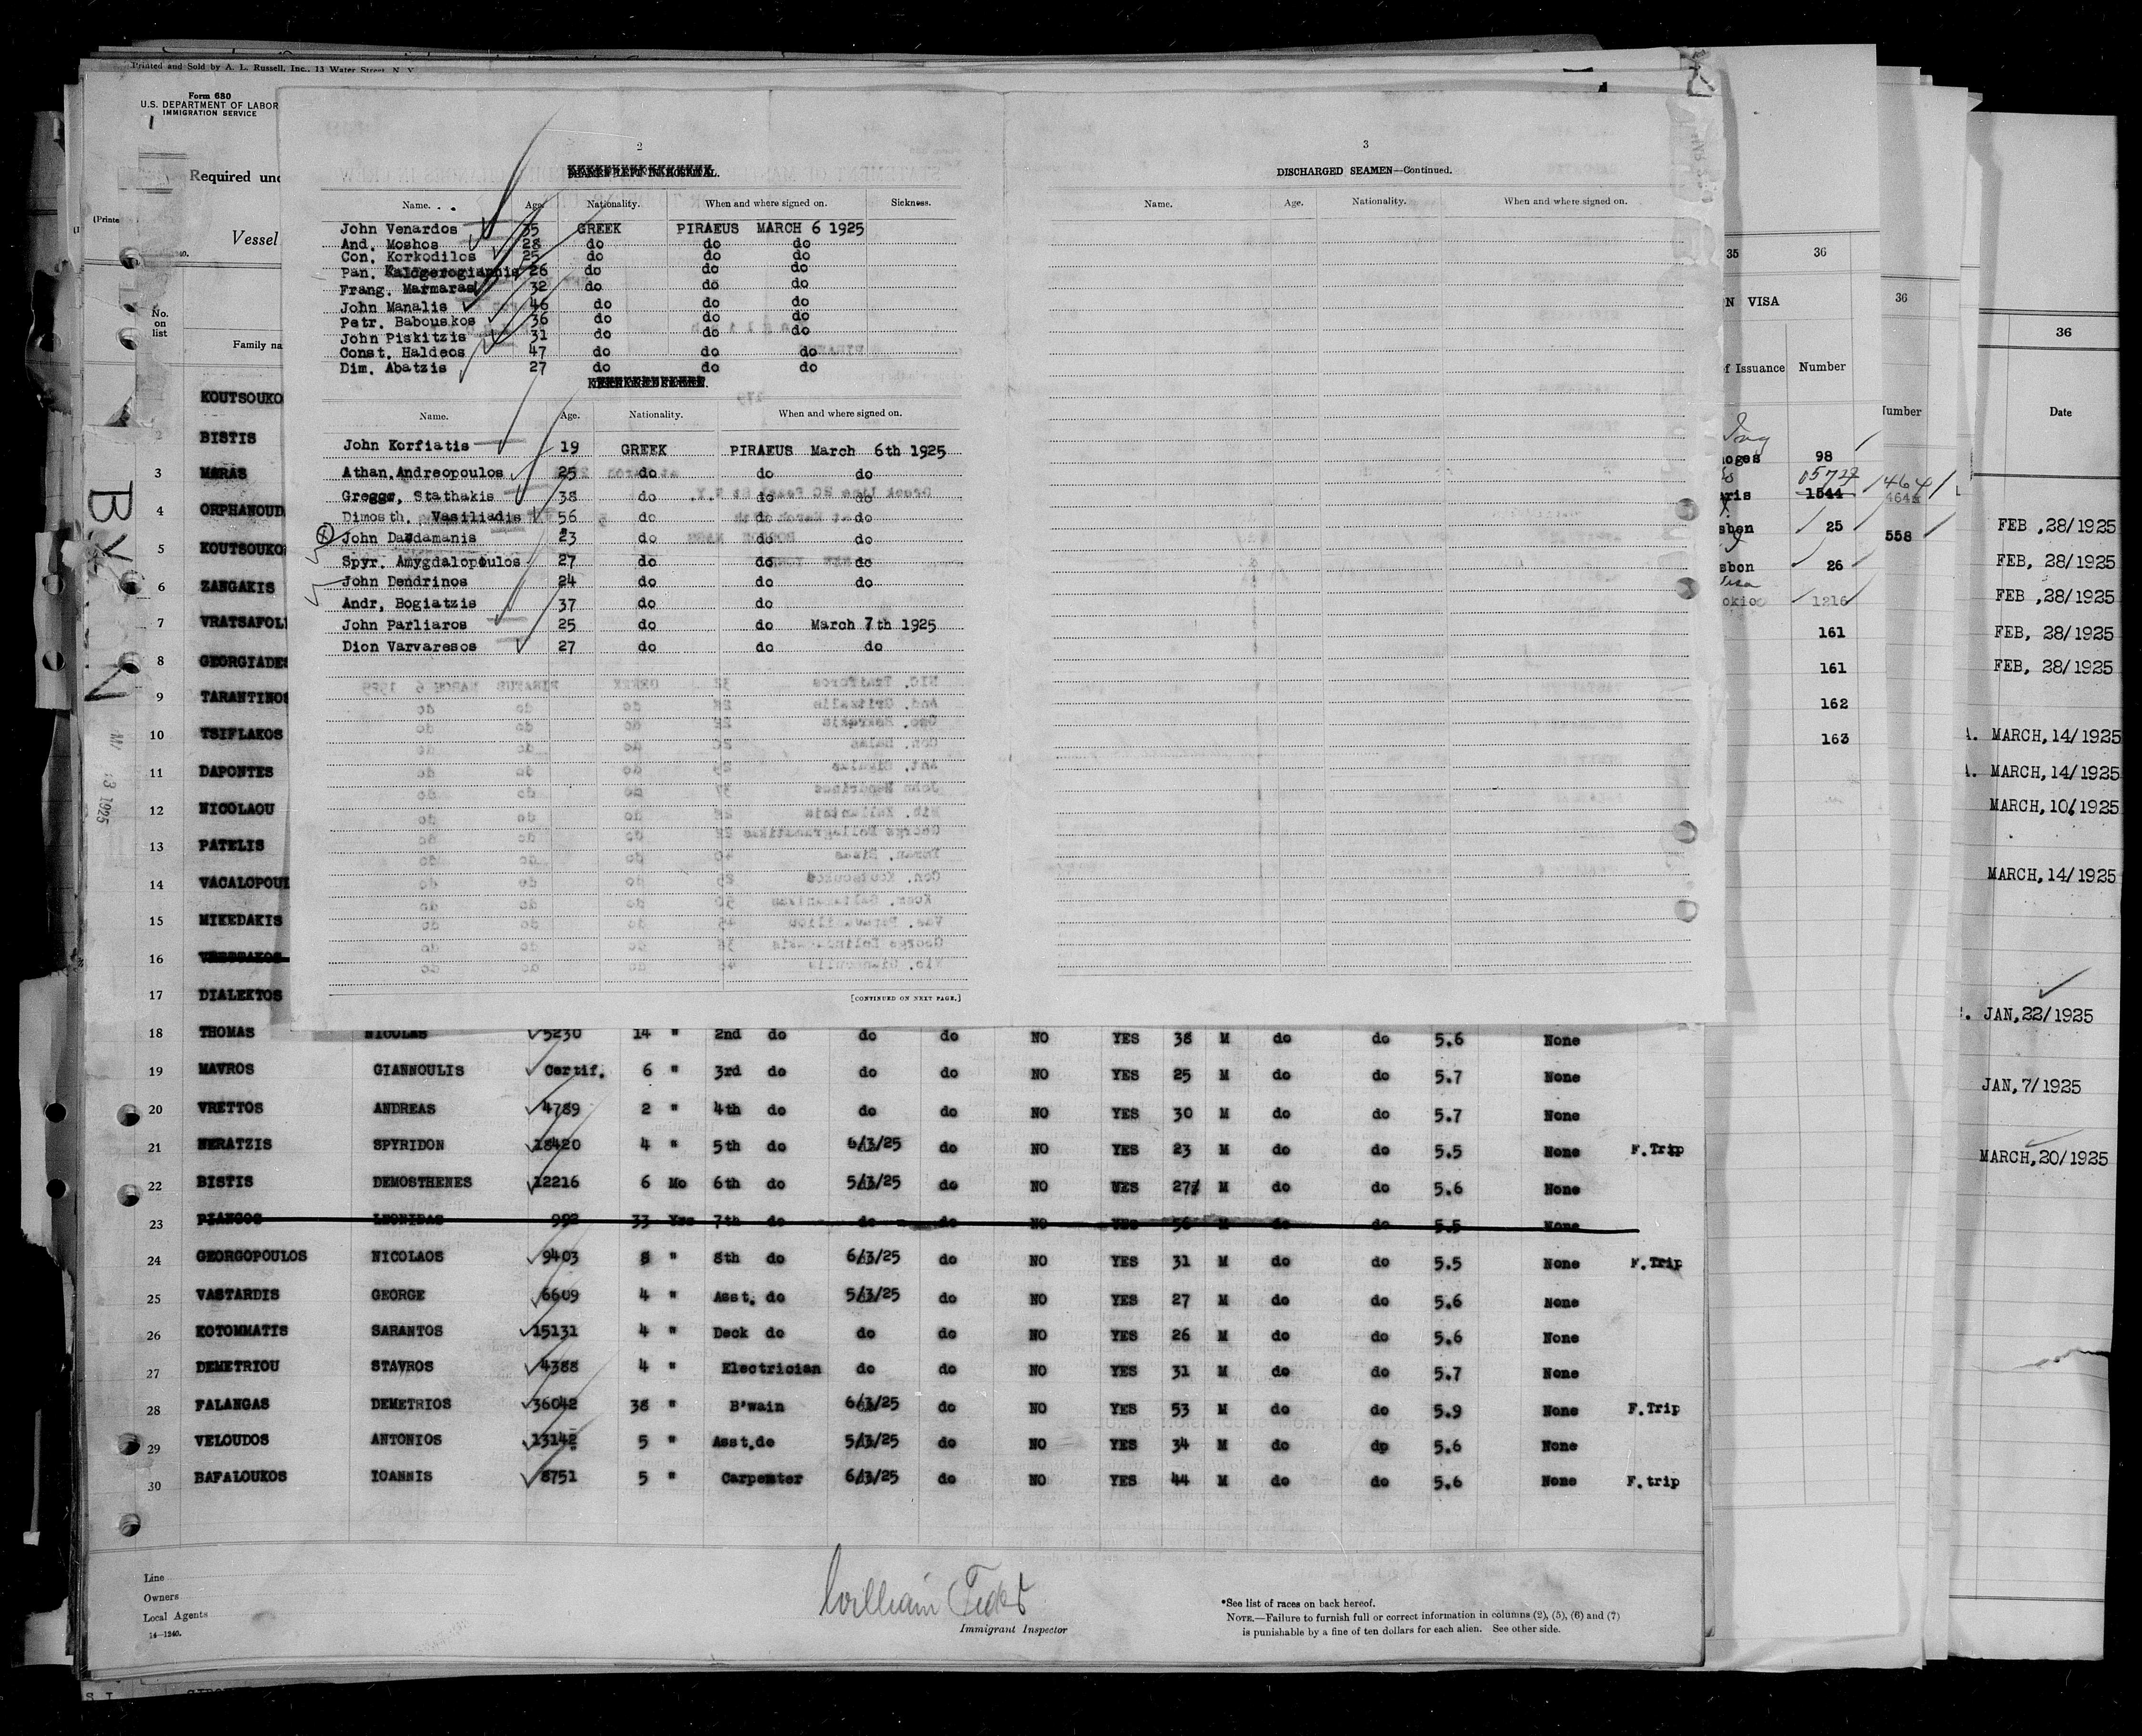 Printed and Sold by A. L. Russell, Inc., 13 Water Street, N. Y.
Form 680
U.S. DEPARTMENT OF LABOR
IMMIGRATION SERVICE
Required und
(Printe
Vessel
No.
on
list
Family na
KOUTSOUKO
2 BISTIS
3 MARAS
4 ORPHANOUD
5 KOUTSOUKO
6 ZANGAKIS
7 VRATSAFOL
8 GEORGIADES
9 TARANTINOS
10 TSIFLAKOS
11 DAPONTES
12 NICOLAOU
13 PATELIS
14 VACALOPOUL
15 MIKEDAKIS
16
17 DIALEKTOS
2
Name. Age. Nationality. When and where signed on. Sickness.
John Venardos 35 GREEK PIRAEUS MARCH 6 1925
And. Moshos 28 do do do
Con. Korkodilos 25 do do do
Pan. Kalogerogiannis 26 do do do
Frang. Marmaras 32 do do do
John Manalis 46 do do do
Petr. Babouskos 36 do do do
John Piskitzis 31 do do do
Const. Haldeos 47 do do do
Dim. Abatzis 27 do do do
Name. Age. Nationality. When and where signed on.
John Korfiatis 19 GREEK PIRAEUS March 6th 1925
Athan. Andreopoulos 25 do do do
Gregge, Stathakis 38 do do do
Dimosth. Vasiliadis 56 do do do
John Dandamanis 23 do do do
Spyr. Amygdalopoulos 27 do do do
John Dendrinos 24 do do do
Andr, Bogiatzis 37 do do
John Parliaros 25 do do March 7th 1925
Dion Varvaresos 27 do do do
[CONTINUED ON NEXT PAGE.]
3
DISCHARGED SEAMEN—Continued.
Name. Age. Nationality. When and where signed on.
18 THOMAS NICOLAS 5230 14 " 2nd do do do NO YES 38 M do do 5.6 None
19 MAVROS GIANNOULIS Certif. 6 " 3rd do do do NO YES 25 M do do 5.7 None
20 VRETTOS ANDREAS 4789 2 " 4th do do do NO YES 30 M do do 5.7 None
21 NERATZIS SPYRIDON 18420 4 " 5th do 6/3/25 NO YES 23 M do do 5.5 None F.Trip
22 BISTIS DEMOSTHENES 12216 6 Mo 6th do 5/3/25 do NO YES 27 M do do 5.6 None
23 PIANGOS LEONIDAS 992 33 Yrs 7th do do do NO YES 56 M do do 5.5 None
24 GEORGOPOULOS NICOLAOS 9403 8 " 8th do 6/3/25 do NO YES 31 M do do 5.5 None F.Trip
25 VASTARDIS GEORGE 6609 4 " Asst. do 5/3/25 do NO YES 27 M do do 5.6 None
26 KOTOMMATIS SARANTOS 15131 4 " Deck do do do NO YES 26 M do do 5.6 None
27 DEMETRIOU STAVROS 4388 4 " Electrician do do NO YES 31 M do do 5.7 None
28 FALANGAS DEMETRIOS 36042 38 " B'wain 6/3/25 do NO YES 53 M do do 5.9 None F.Trip
29 VELOUDOS ANTONIOS 13142 5 " Asst.do 5/3/25 do NO YES 34 M do do 5.6 None
30 BAFALOUKOS IOANNIS 8751 5 " Carpenter 6/3/25 do NO YES 44 M do do 5.6 None F.trip
Line
Owners
Local Agents
14—1240.
William
Immigrant Inspector
*See list of races on back hereof.
NOTE.—Failure to furnish full or correct information in columns (2), (5), (6) and (7)
is punishable by a fine of ten dollars for each alien. See other side.
35 36
N VISA
of Issuance Number
oges 98
aris 1544
sbon 25
sbon 26
okio 1216
161
161
162
163
36
Number
558
36
Date
FEB ,28/1925
FEB, 28/1925
FEB ,28/1925
FEB, 28/1925
FEB, 28/1925
MARCH,14/1925
MARCH,14/1925
MARCH,10/1925
MARCH,14/1925
JAN,22/1925
JAN,7/1925
MARCH,20/1925